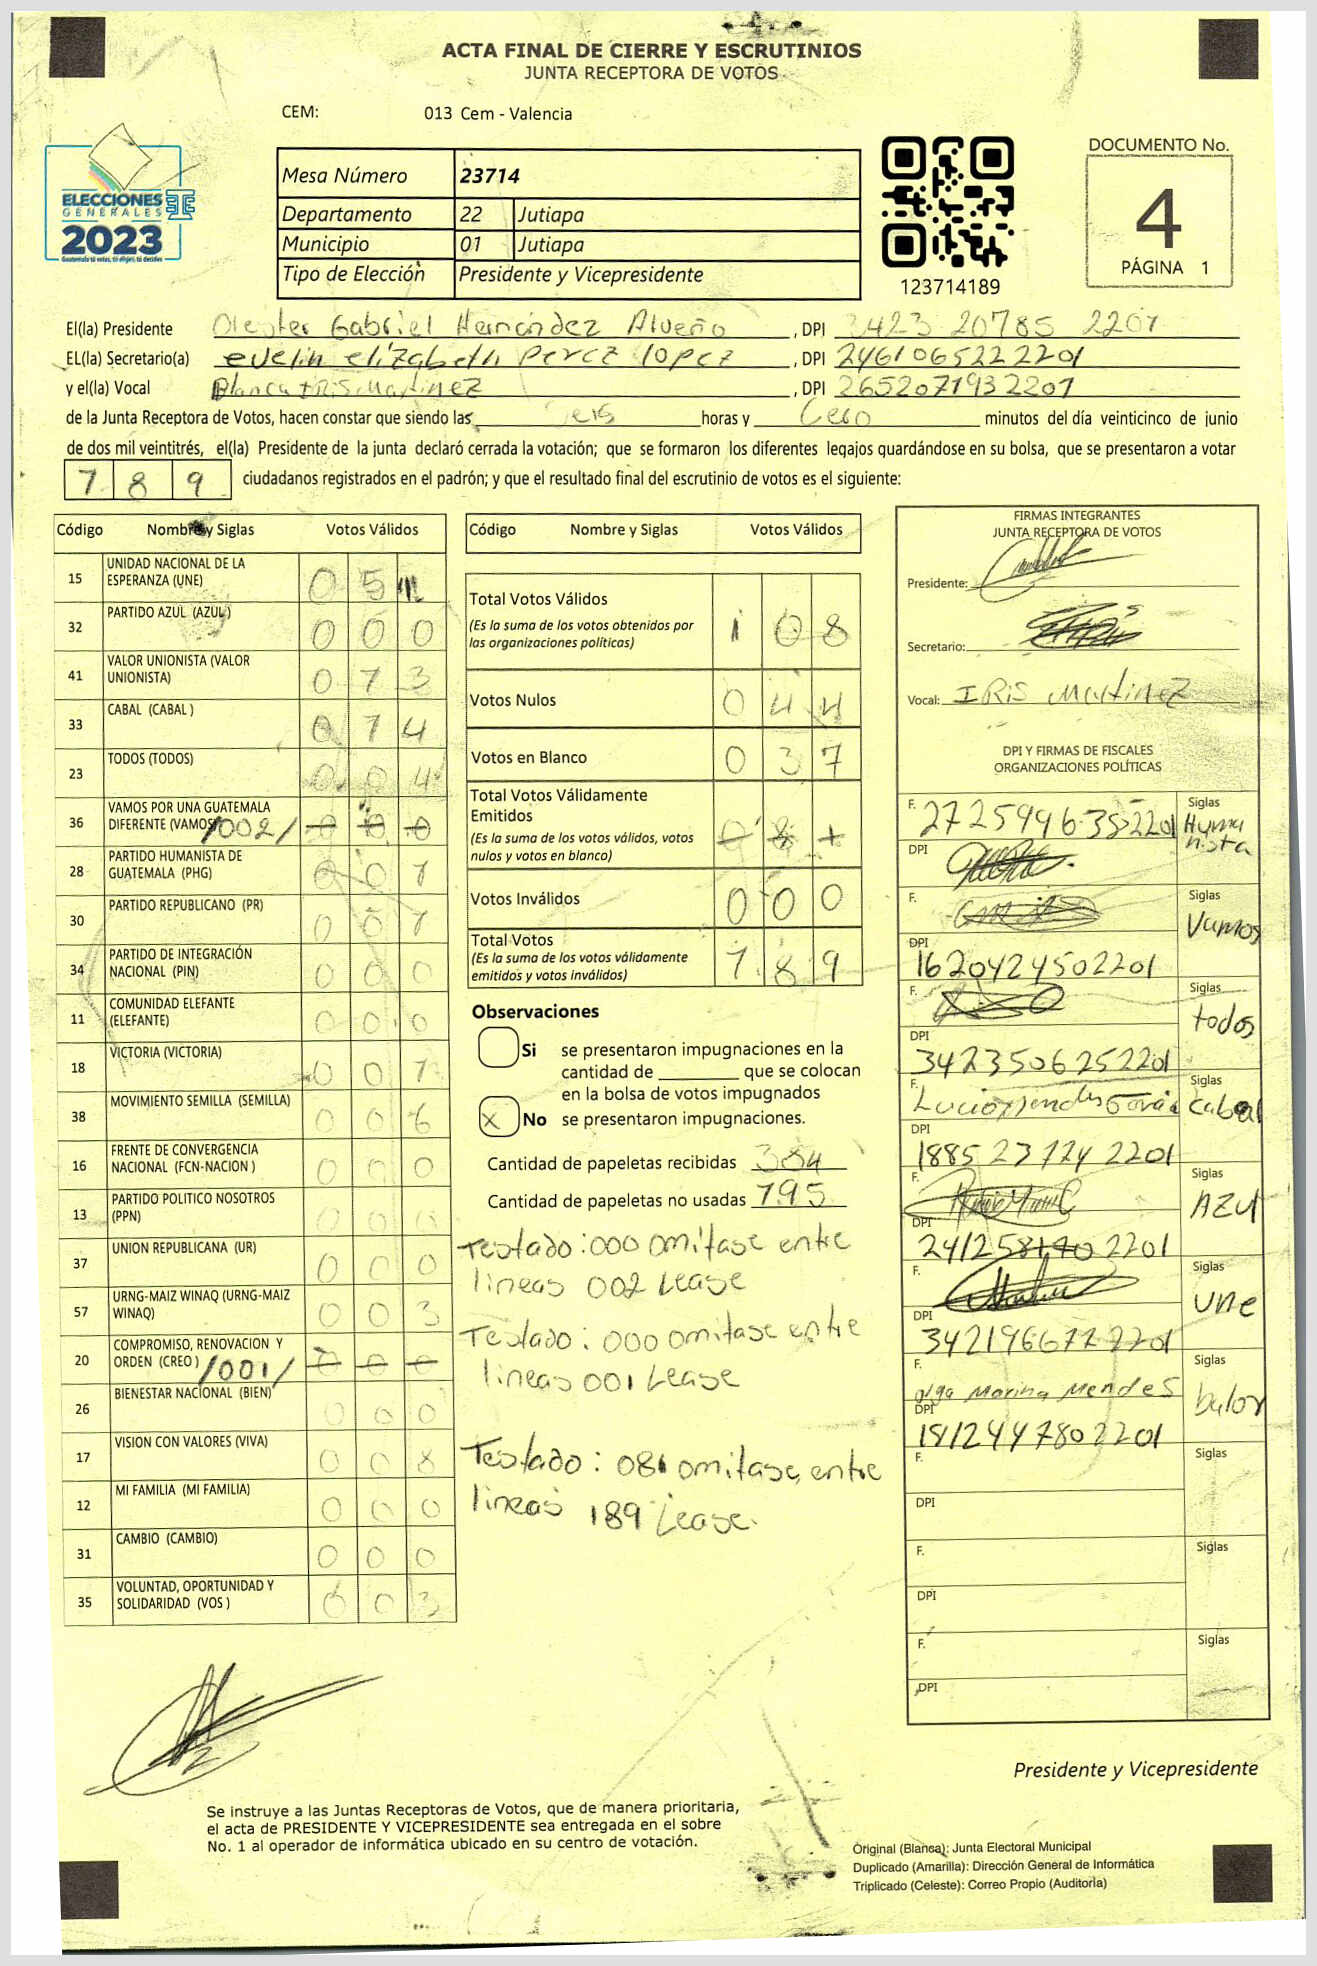 ACTA FINAL DE CIERRE Y ESCRUTINIOS
JUNTA RECEPTORA DE VOTOS
CEM: 013 Cem - Valencia
ELECCIONES
GENERALES
2023
Guatemala tú votas, tú eliges, tú decides
Mesa Número 23714
Departamento 22 Jutiapa
Municipio 01 Jutiapa
Tipo de Elección Presidente y Vicepresidente
123714189
DOCUMENTO No.
4
PÁGINA 1
El(la) Presidente Gabriel Hernández , DPI 3423 20785 2201
EL(la) Secretario(a) evelin elizabeth Perez lopez , DPI 2461065222201
y el(la) Vocal Blanca IRIS Martinez , DPI 2652071932201
de la Junta Receptora de Votos, hacen constar que siendo las seis horas y Cero minutos del día veinticinco de junio
de dos mil veintitrés, el(la) Presidente de la junta declaró cerrada la votación; que se formaron los diferentes legajos guardándose en su bolsa, que se presentaron a votar
789 ciudadanos registrados en el padrón; y que el resultado final del escrutinio de votos es el siguiente:
Código Nombre y Siglas Votos Válidos
15 UNIDAD NACIONAL DE LA ESPERANZA (UNE) 0 5
32 PARTIDO AZUL (AZUL) 0 0 0
41 VALOR UNIONISTA (VALOR UNIONISTA) 0 7 3
33 CABAL (CABAL) 0 1 4
23 TODOS (TODOS) 0 0 4
36 VAMOS POR UNA GUATEMALA DIFERENTE (VAMOS) /002/ 0 0 0
28 PARTIDO HUMANISTA DE GUATEMALA (PHG) 0 0 1
30 PARTIDO REPUBLICANO (PR) 0 0 1
34 PARTIDO DE INTEGRACIÓN NACIONAL (PIN) 0 0 0
11 COMUNIDAD ELEFANTE (ELEFANTE) 0 0 0
18 VICTORIA (VICTORIA) 0 0 1
38 MOVIMIENTO SEMILLA (SEMILLA) 0 0 6
16 FRENTE DE CONVERGENCIA NACIONAL (FCN-NACION) 0 0 0
13 PARTIDO POLITICO NOSOTROS (PPN) 0 0 0
37 UNION REPUBLICANA (UR) 0 0 0
57 URNG-MAIZ WINAQ (URNG-MAIZ WINAQ) 0 0 3
20 COMPROMISO, RENOVACION Y ORDEN (CREO) /001/ 0 0 0
26 BIENESTAR NACIONAL (BIEN) 0 0 0
17 VISION CON VALORES (VIVA) 0 0 8
12 MI FAMILIA (MI FAMILIA) 0 0 0
31 CAMBIO (CAMBIO) 0 0 0
35 VOLUNTAD, OPORTUNIDAD Y SOLIDARIDAD (VOS) 0 0 3
Código Nombre y Siglas Votos Válidos
Total Votos Válidos 1 0 8
(Es la suma de los votos obtenidos por
las organizaciones políticas)
Votos Nulos 0 4 4
Votos en Blanco 0 3 7
Total Votos Válidamente
Emitidos 0 8 1
(Es la suma de los votos válidos, votos
nulos y votos en blanco)
Votos Inválidos 0 0 0
Total Votos 1 8 9
(Es la suma de los votos válidamente
emitidos y votos inválidos)
Observaciones
Si se presentaron impugnaciones en la
cantidad de ________ que se colocan
en la bolsa de votos impugnados
X No se presentaron impugnaciones.
Cantidad de papeletas recibidas 384
Cantidad de papeletas no usadas 195
Testado: 000 omitase entre
lineas 002 Lease
Testado: 000 omitase entre
lineas 001 Lease
Testado: 081 omitase entre
lineas 189 Lease.
FIRMAS INTEGRANTES
JUNTA RECEPTORA DE VOTOS
Presidente:
Secretario:
Vocal: IRIS Martinez
DPI Y FIRMAS DE FISCALES
ORGANIZACIONES POLÍTICAS
F. 2725996382201 Siglas Humanista
DPI
F. Siglas Vamos
DPI 1620424502201
F. Siglas todos
DPI 3423506252201
F. Siglas Cabal
DPI 1885 23724 2201
F. Siglas AZUL
DPI 241258140 2201
F. Siglas une
DPI 3421966722201
F. olga Marina Mendes Siglas balor
DPI 1812447802201
F. Siglas
DPI
F. Siglas
DPI
F. Siglas
DPI
Presidente y Vicepresidente
Se instruye a las Juntas Receptoras de Votos, que de manera prioritaria,
el acta de PRESIDENTE Y VICEPRESIDENTE sea entregada en el sobre
No. 1 al operador de informática ubicado en su centro de votación.
Original (Blanca): Junta Electoral Municipal
Duplicado (Amarilla): Dirección General de Informática
Triplicado (Celeste): Correo Propio (Auditoría)